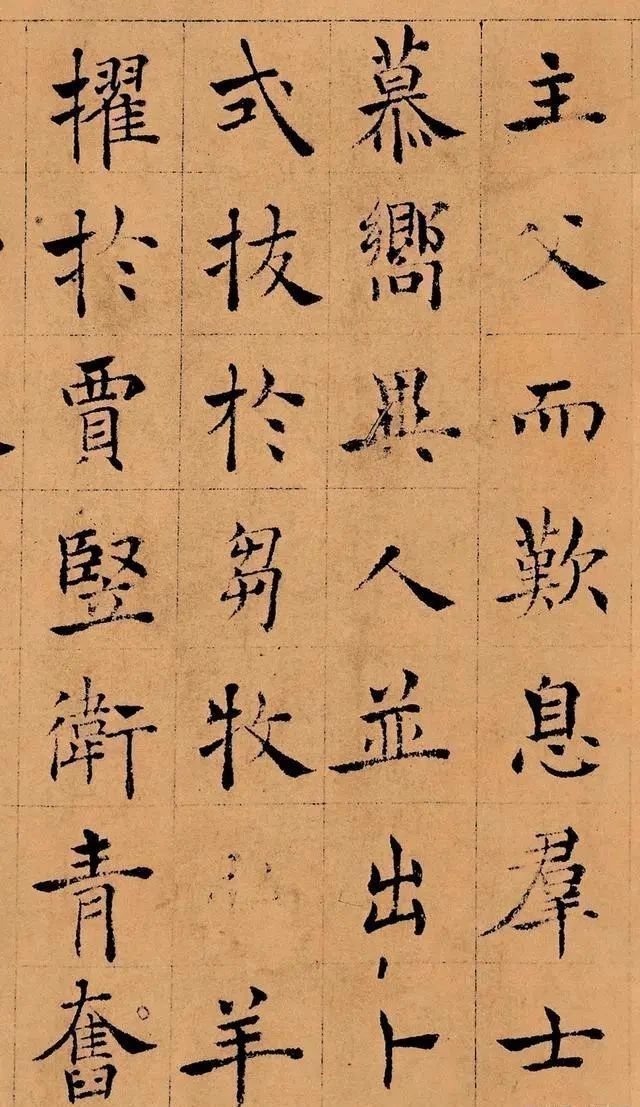 主父而歎息羣士
慕嚮異人並出卜
式拔於芻牧羊
擢於賈豎衛青奮